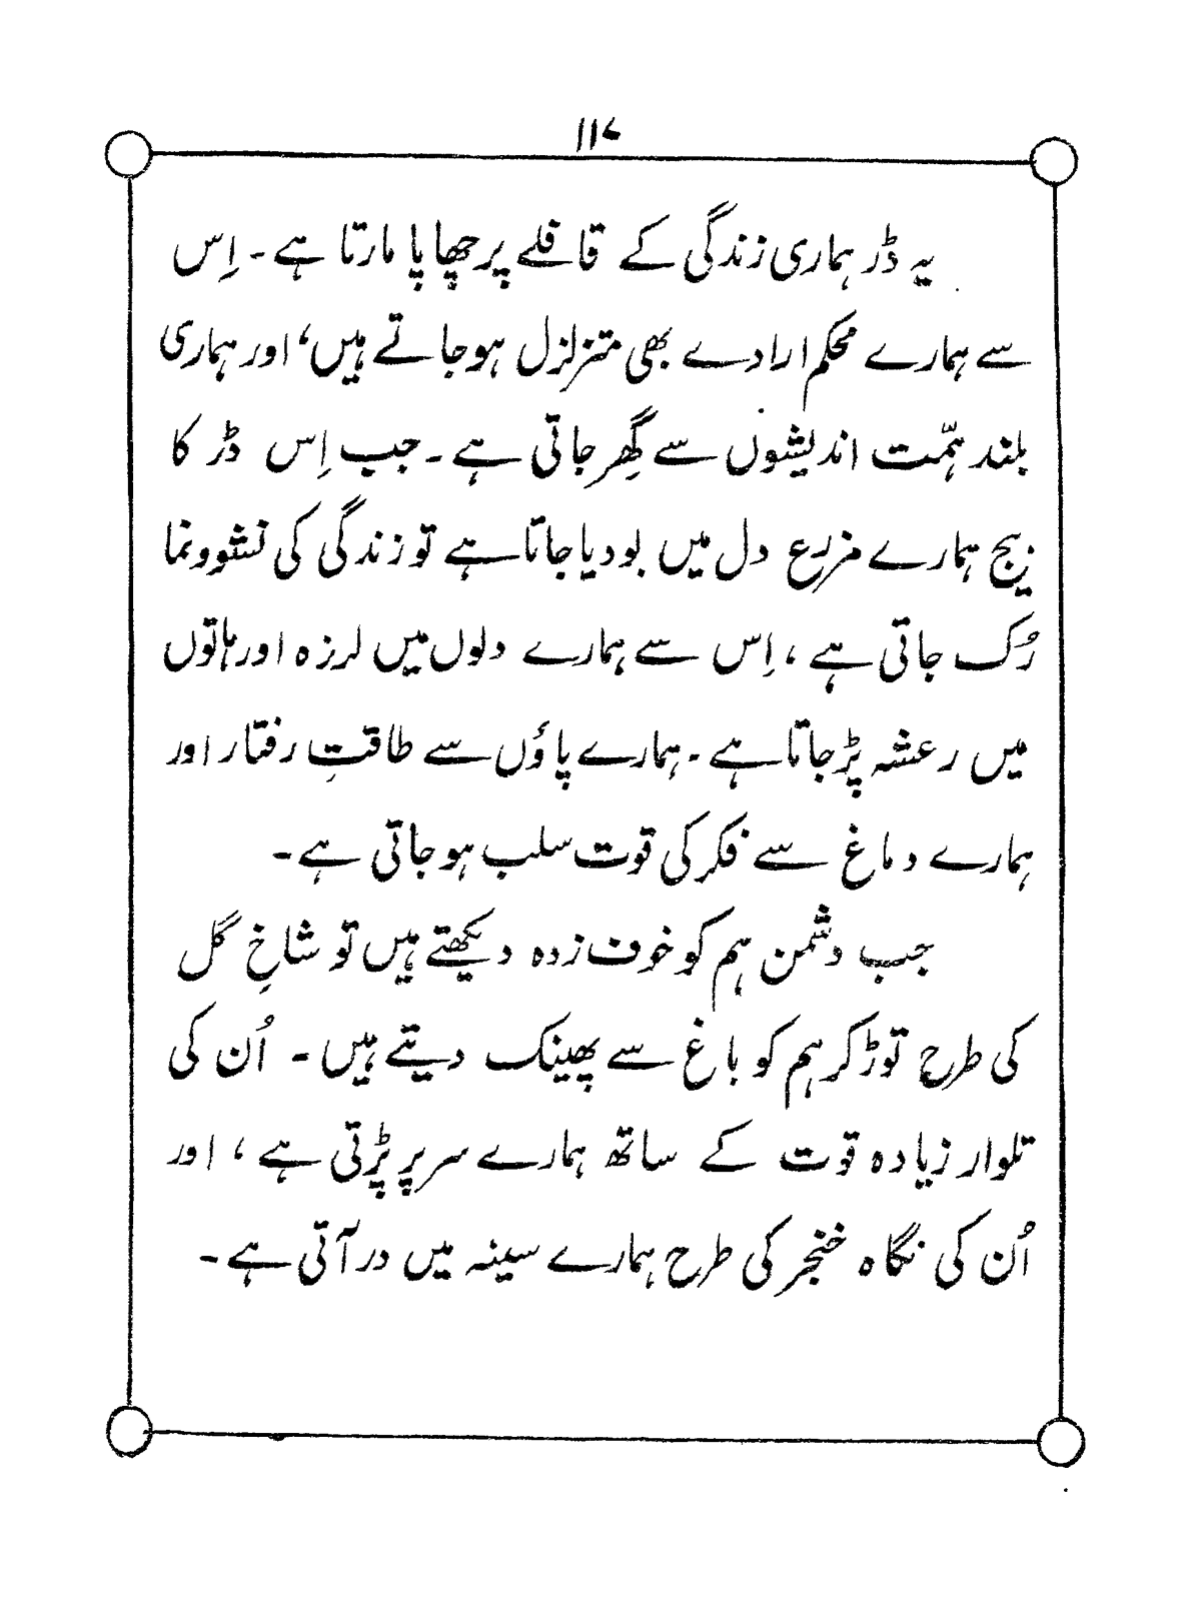 ۱۱۷
یہ ڈر ہماری زندگی کے قافلے پر چھاپا مارتا ہے۔ اِس
سے ہمارے محکم ارادے بھی متزلزل ہوجاتے ہیں، اور ہماری
بلند ہمّت اندیشوں سے گھِر جاتی ہے۔ جب اِس ڈر کا
بیج ہمارے مزرع دل میں بودیا جاتا ہے تو زندگی کی نشوونما
رُک جاتی ہے، اِس سے ہمارے دلوں میں لرزہ اور ہاتوں
میں رعشہ پڑجاتا ہے۔ ہمارے پاؤں سے طاقتِ رفتار اور
ہمارے دماغ سے فکر کی قوت سلب ہوجاتی ہے۔
جب دشمن ہم کو خوف زدہ دیکھتے ہیں تو شاخِ گل
کی طرح توڑ کر ہم کو باغ سے پھینک دیتے ہیں۔ اُن کی
تلوار زیادہ قوت کے ساتھ ہمارے سر پر پڑتی ہے، اور
اُن کی نگاہ خنجر کی طرح ہمارے سینہ میں در آتی ہے۔